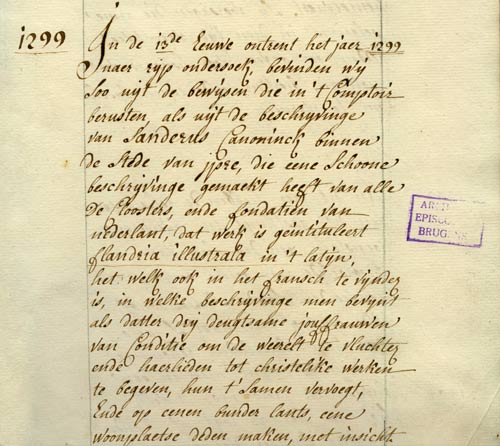 1299
In de 13de Eeuwe ontrent het jaer 1299
naer rijp ondersoek, bevinden wij
soo uijt de bewijsen die in 't Comptoir
berusten, als uijt de beschrijvinge
van Sanderus Canoninck binnen
de stede van jpre, die eene schoone
beschrijvinge gemaekt heeft van alle
de Cloosters, ende fondatiën van
nederlant, dat werk is geïntituleert
flandria illustrata in 't latijn,
het welk ook in het fransch te vynden
is, in welke beschrijvinge men bevynt
als datter drij deugtsame jouffrauwen
van Conditie om de weerelt te vluchten
ende haerlieden tot christelike werken
te begeven, hun t'samen vervoegt,
Ende op eenen bunder lants, eene
woonplaetse deden maken, met insicht
EPISC
BRUGENS